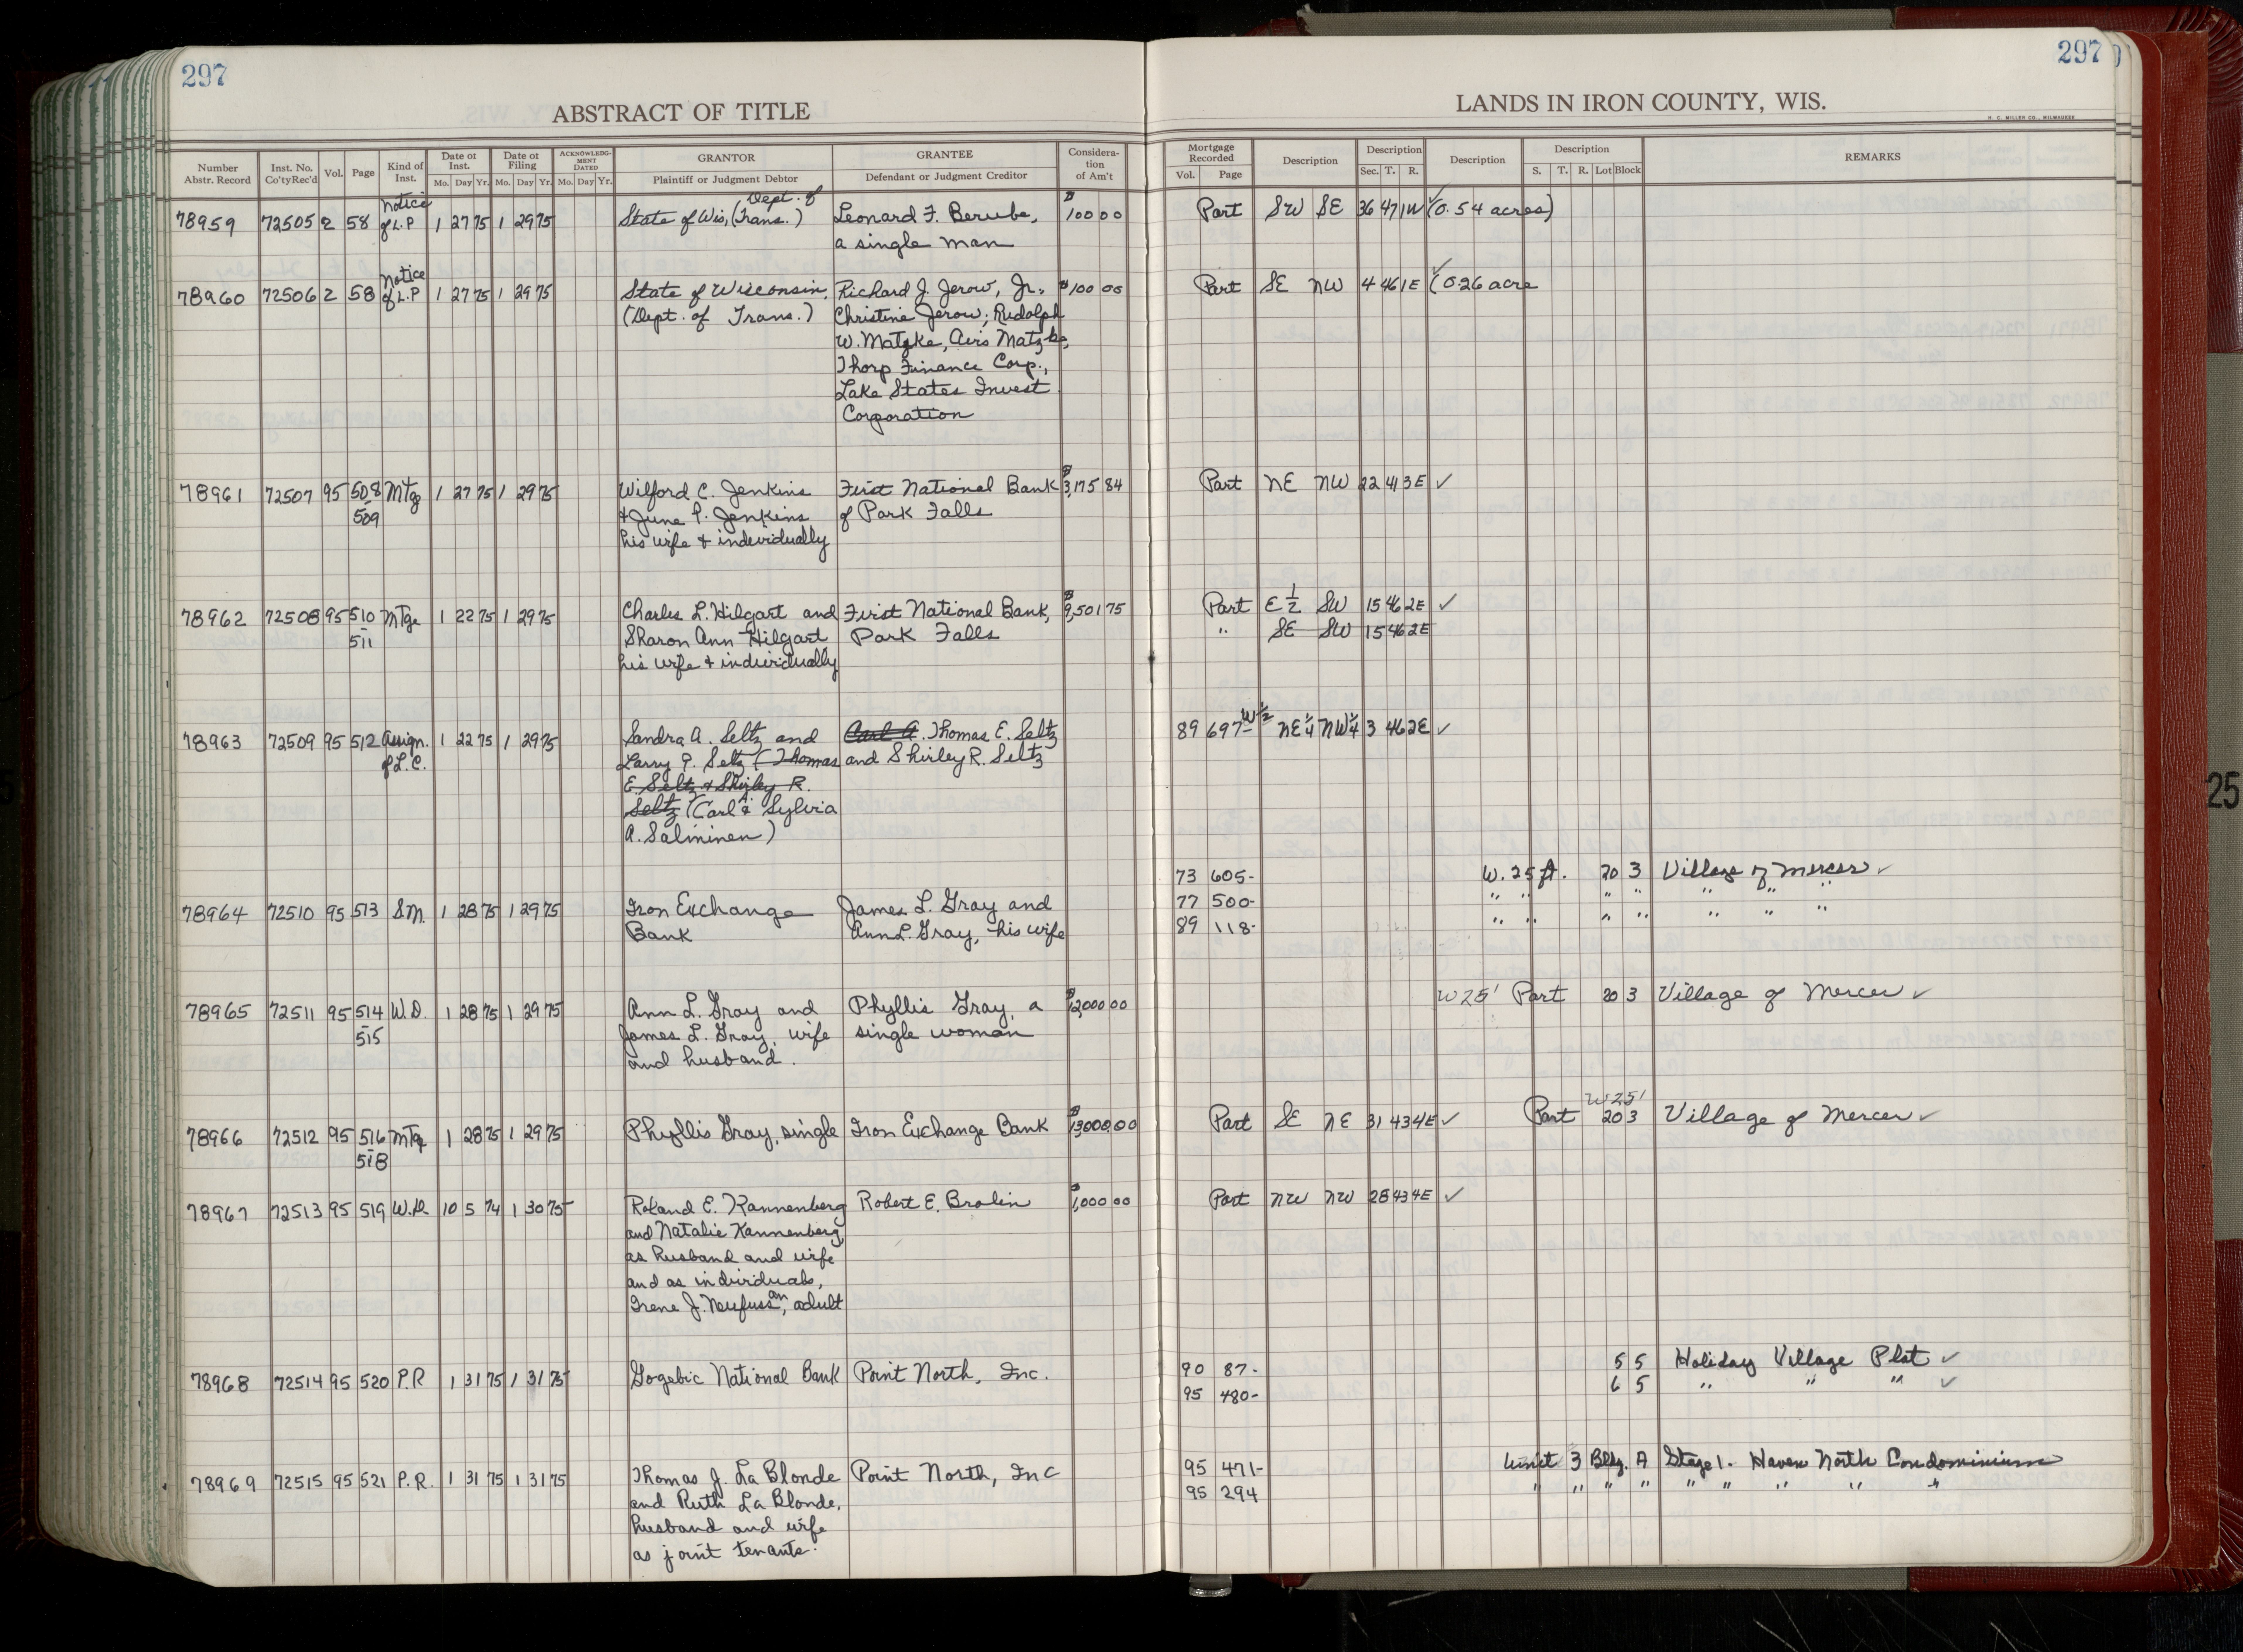 297
297
ABSTRACT OF TITLE
LANDS IN IRON COUNTY, WIS.
H. C. MILLER CO., MILWAUKEE
Number Abstr. Record | Inst. No. Co'ty Rec'd | Vol. | Page | Kind of Inst. | Date of Inst. Mo. Day Yr. | Date of Filing Mo. Day Yr. | ACKNOWLEDGMENT DATED Mo. Day Yr. | GRANTOR Plaintiff or Judgment Debtor | GRANTEE Defendant or Judgment Creditor | Consideration of Am't | Mortgage Recorded Vol. Page | Description | Description Sec. T. R. | Description | Description S. T. R. Lot Block | REMARKS
78959 72505 2 58 Notice of L.P 1 27 75 1 29 75 State of Wis, (Dept. of Trans.) Leonard F. Berube, $100 00 Part SW SE 36 47 1W ✓ (0.54 acres)
a single man
78960 72506 2 58 Notice of L.P 1 27 75 1 29 75 State of Wisconsin, Richard J. Jerow, Jr., $100 00 Part SE NW 4 46 1E ✓ (0.26 acre
(Dept. of Trans.) Christine Jerow; Rudolph
W. Matzke, Avis Matzke,
Thorp Finance Corp.,
Lake States Invest
Corporation
78961 72507 95 508 Mtge 1 27 75 1 29 75 Wilford C. Jenkins First National Bank $3,175 84 Part NE NW 22 41 3E ✓
- 509 & June P. Jenkins of Park Falls
his wife & individually
78962 72508 95 510 Mtge 1 22 75 1 29 75 Charles L. Hilgart and First National Bank, $9,501 75 Part E ½ SW 15 46 2E ✓
- 511 Sharon Ann Hilgart Park Falls " SE SW 15 46 2E
his wife & individually
78963 72509 95 512 Assign. of L.C. 1 22 75 1 29 75 Sandra A. Seltz and Carl A. Thomas E. Seltz 89 697- W½ NE¼ NW¼ 3 46 2E ✓
Larry P. Seltz (Thomas and Shirley R. Seltz
E. Seltz & Shirley R.
Seltz) (Carl & Sylvia
A. Salminen)
73 605- W. 25 ft. 20 3 Village of Mercer ✓
78964 72510 95 513 S.M. 1 28 75 1 29 75 Iron Exchange James L. Gray and 77 500- " " " " " " "
Bank Ann L. Gray, his wife 89 118- " " " " " " "
78965 72511 95 514 W.D. 1 28 75 1 29 75 Ann L. Gray and Phyllis Gray, a $12,000 00 W 25' Part 20 3 Village of Mercer ✓
- 515 James L. Gray, wife single woman
and husband.
78966 72512 95 516 Mtge 1 28 75 1 29 75 Phyllis Gray, single Iron Exchange Bank $13,000 00 Part SE NE 31 43 4E ✓ Part W 25' 20 3 Village of Mercer ✓
- 518
78967 72513 95 519 W.D. 10 5 74 1 30 75 Roland E. Kannenberg Robert E. Brolin $1,000 00 Part NW NW 28 43 4E ✓
and Natalie Kannenberg,
as husband and wife
and as individuals,
Irene J. Neufuss, an adult
78968 72514 95 520 P.R 1 31 75 1 31 75 Gogebic National Bank Point North, Inc. 90 87- 5 5 Holiday Village Plat ✓
95 480- 6 5 " " " ✓
78969 72515 95 521 P.R. 1 31 75 1 31 75 Thomas J. La Blonde Point North, Inc 95 471- Unit 3 Bldg. A Stage 1. Haven North Condominium
and Ruth La Blonde, 95 294 " " " " " " " " "
husband and wife
as joint tenants.
25